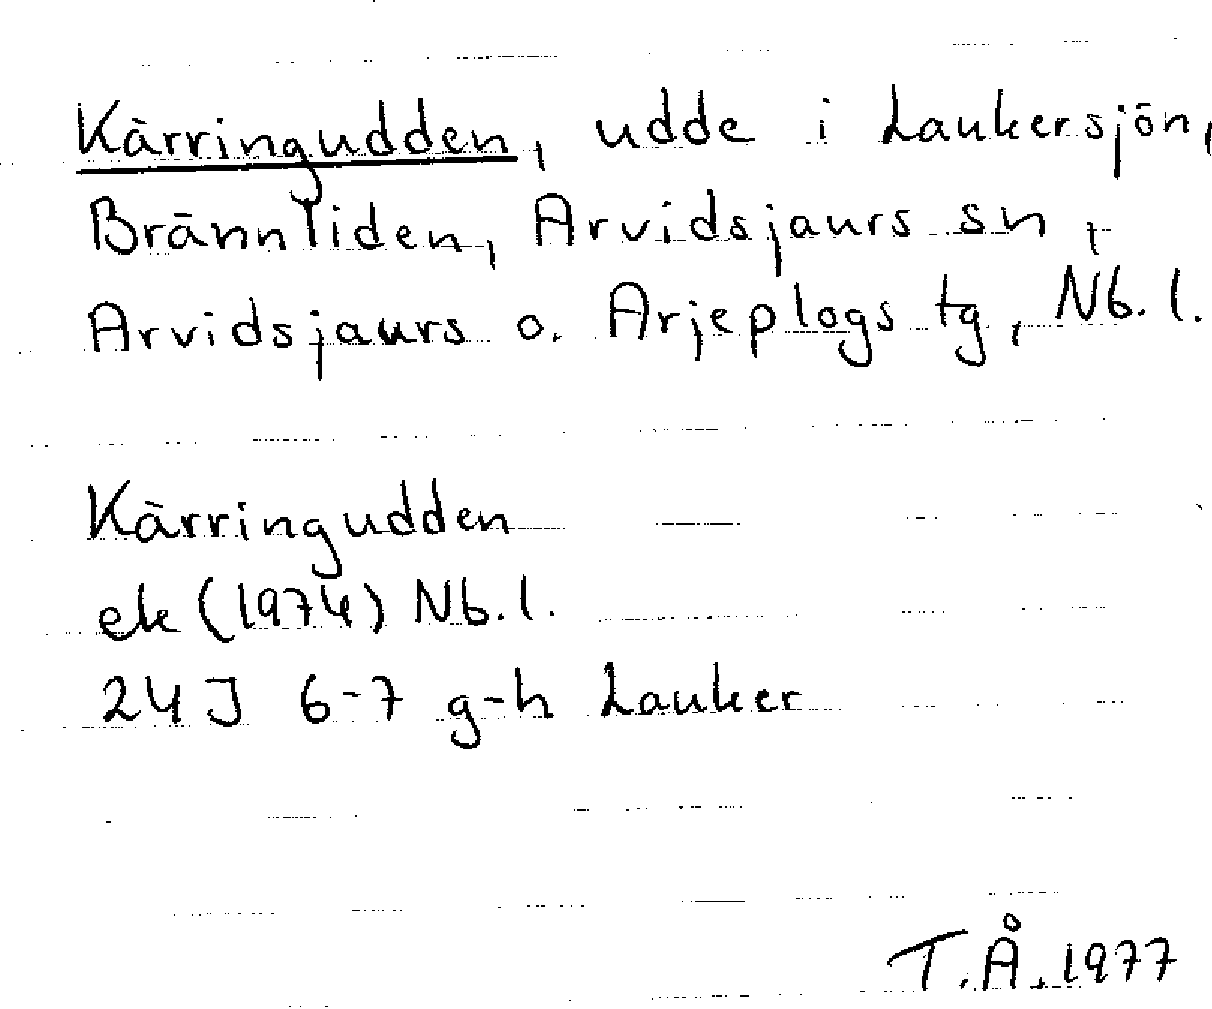 Kärringudden, udde i Laukersjön,
Brännliden, Arvidsjaurs sn,
Arvidsjaurs o. Arjeplogs tg, Nb. l.
Kärringudden
ek (1974) Nb. l.
24 J 6-7 g-h Lauker
T. Å. 1977